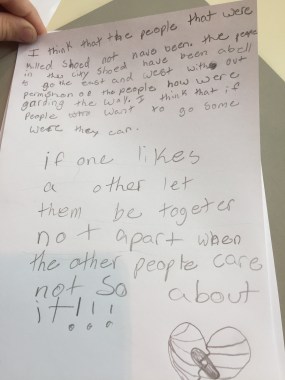 I think that the people that were
killed shoed not have been. the people
in the city shoed have been abell
to go the east and west with out
permetion of the people how were
garding the wall. I think that if
people want to go some
were they can.
if one likes
a other let
them be togeter
not apart when
the other people care
not so about
it!!!